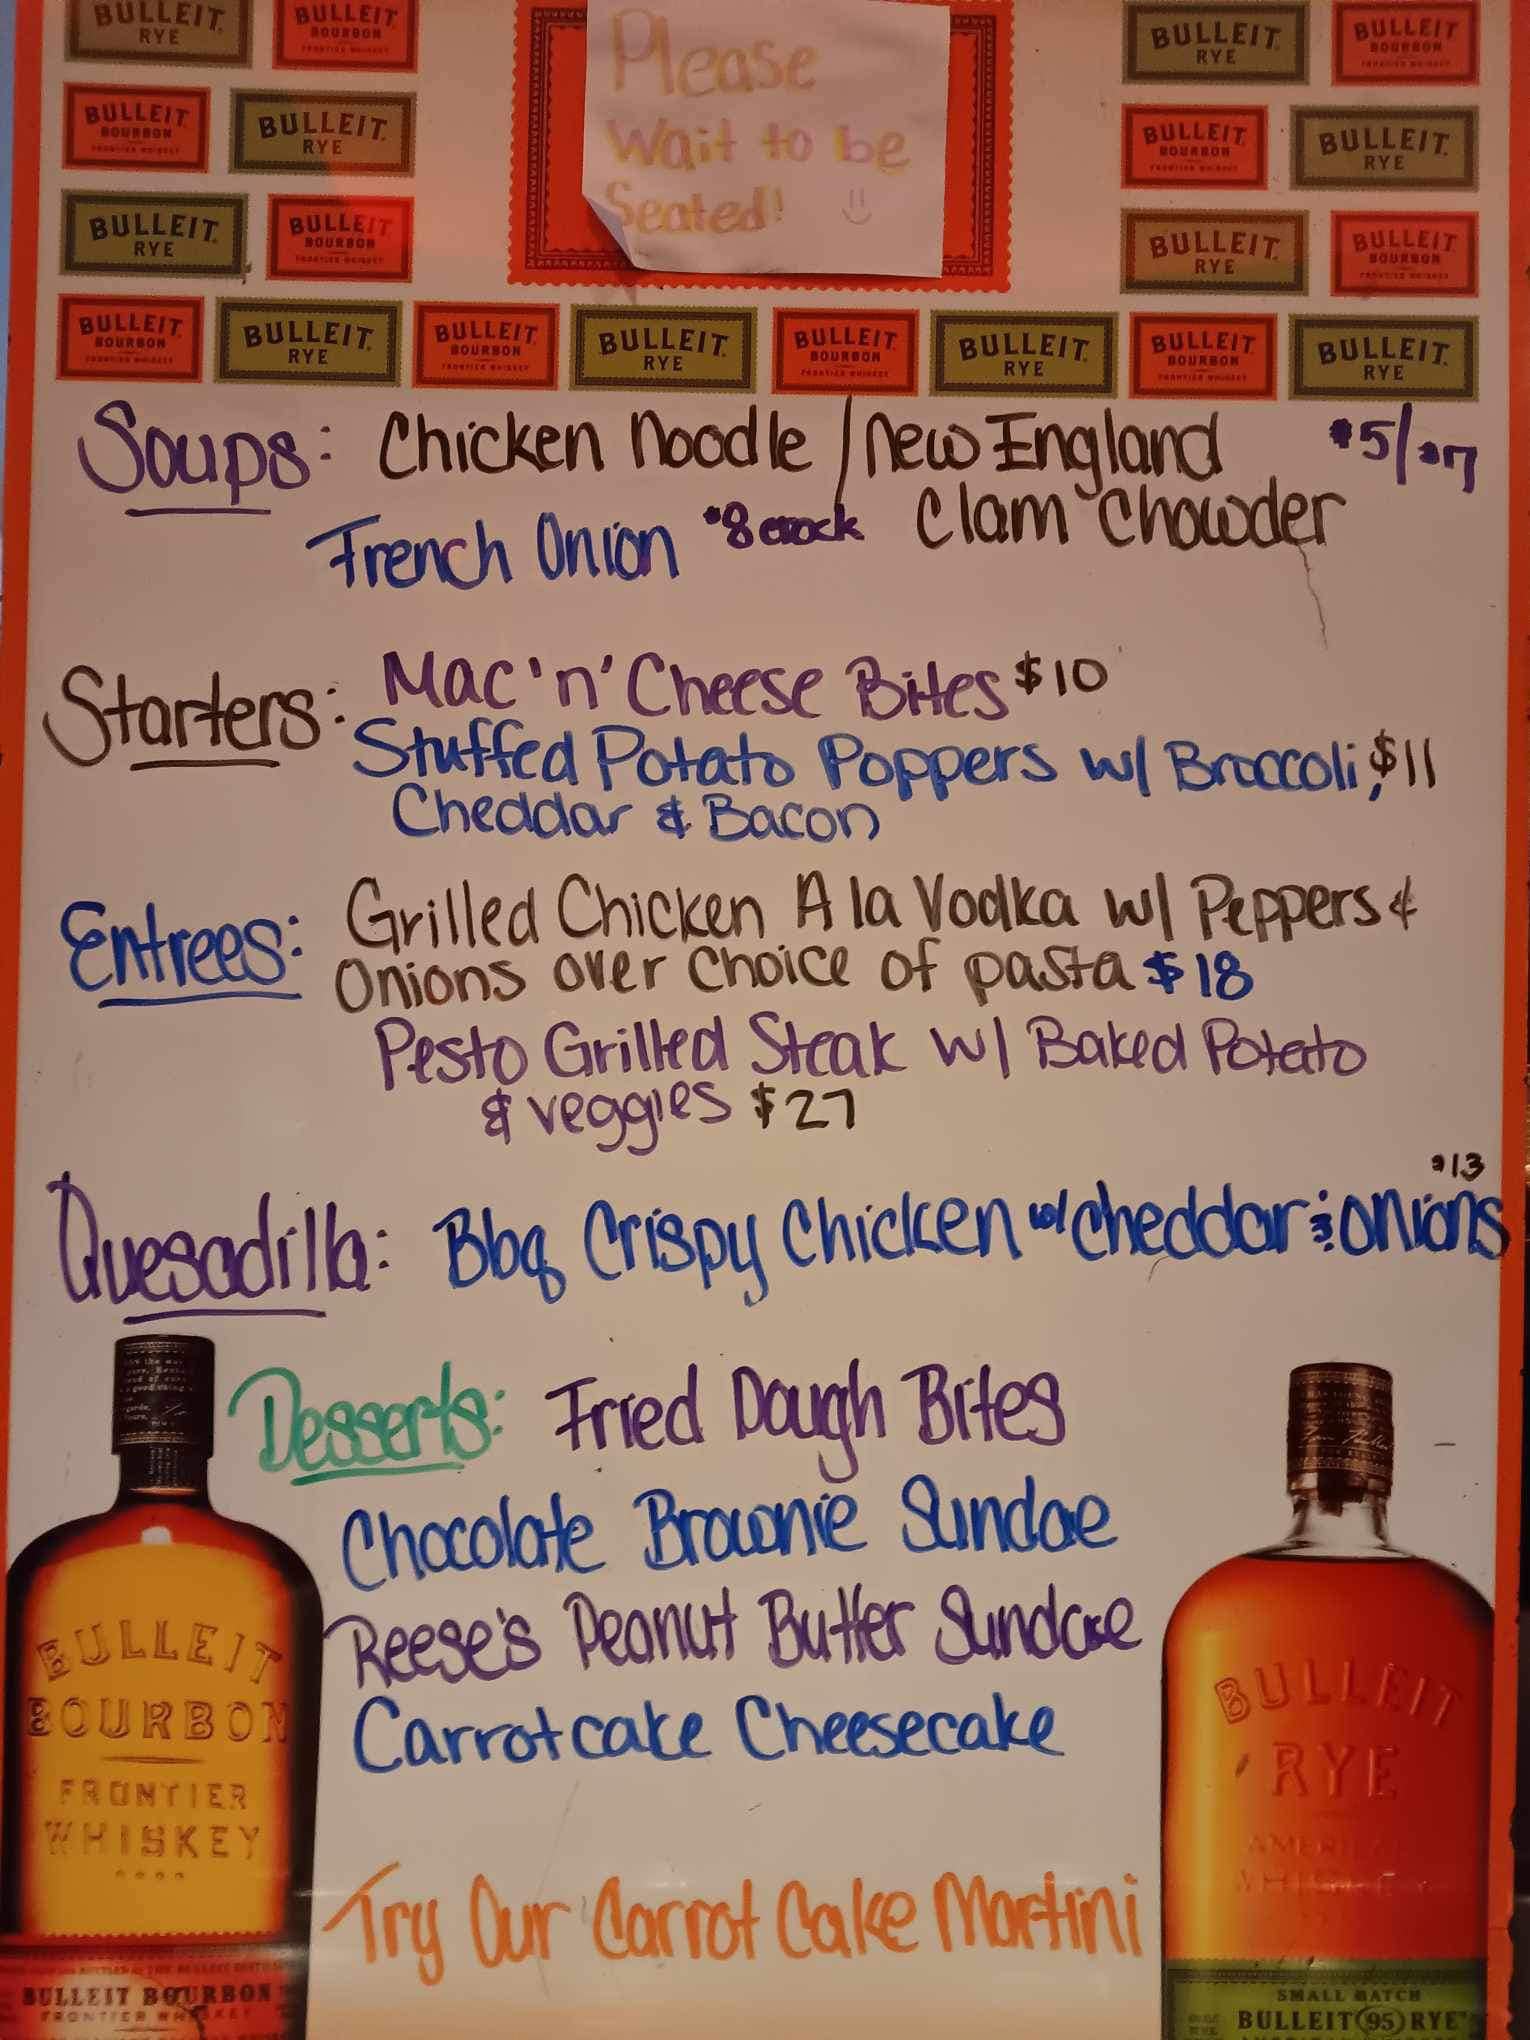 BULLEIT RYE
BULLEIT BOURBON FRONTIER WHISKEY
Please
BULLEIT RYE
BULLEIT BOURBON FRONTIER WHISKEY
BULLEIT BOURBON FRONTIER WHISKEY
BULLEIT RYE
Wait to be
BULLEIT BOURBON FRONTIER WHISKEY
BULLEIT RYE
BULLEIT RYE
BULLEIT BOURBON FRONTIER WHISKEY
Seated!
BULLEIT RYE
BULLEIT BOURBON FRONTIER WHISKEY
BULLEIT BOURBON FRONTIER WHISKEY
BULLEIT RYE
BULLEIT BOURBON FRONTIER WHISKEY
BULLEIT RYE
BULLEIT BOURBON FRONTIER WHISKEY
BULLEIT RYE
BULLEIT BOURBON FRONTIER WHISKEY
BULLEIT RYE
Soups: Chicken Noodle / New England $5/$7
French Onion $8 crock Clam Chowder
Starters: Mac 'n' Cheese Bites $10
Stuffed Potato Poppers w/ Broccoli, $11
Cheddar & Bacon
Entrees: Grilled Chicken A la Vodka w/ Peppers &
Onions over choice of pasta $18
Pesto Grilled Steak w/ Baked Potato
& veggies $27
$13
Quesadilla: Bbq Crispy Chicken w/ cheddar & onions
Desserts: Fried Dough Bites
Chocolate Brownie Sundae
Reese's Peanut Butter Sundae
Carrotcake Cheesecake
Try Our Carrot Cake Martini
BULLEIT
BOURBON
FRONTIER
WHISKEY
BULLEIT BOURBON
FRONTIER WHISKEY
BULLEIT
RYE
AMERICAN
WHISKEY
SMALL BATCH
BULLEIT 95 RYE